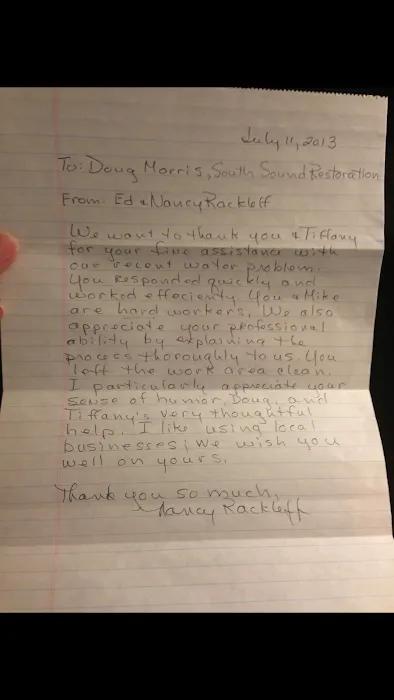 July 11, 2013
To: Doug Morris, South Sound Restoration
From: Ed & Nancy Rackleff
We want to thank you & Tiffany
for your fine assistance with
our recent water problem.
You responded quickly and
worked effeciently. You & Mike
are hard workers. We also
appreciate your professional
ability by explaining the
process thoroughly to us. You
left the work area clean.
I particularly appreciate your
sense of humor, Doug, and
Tiffany's very thoughtful
help. I like using local
businesses; we wish you
well on yours.
Thank you so much,
Nancy Rackleff